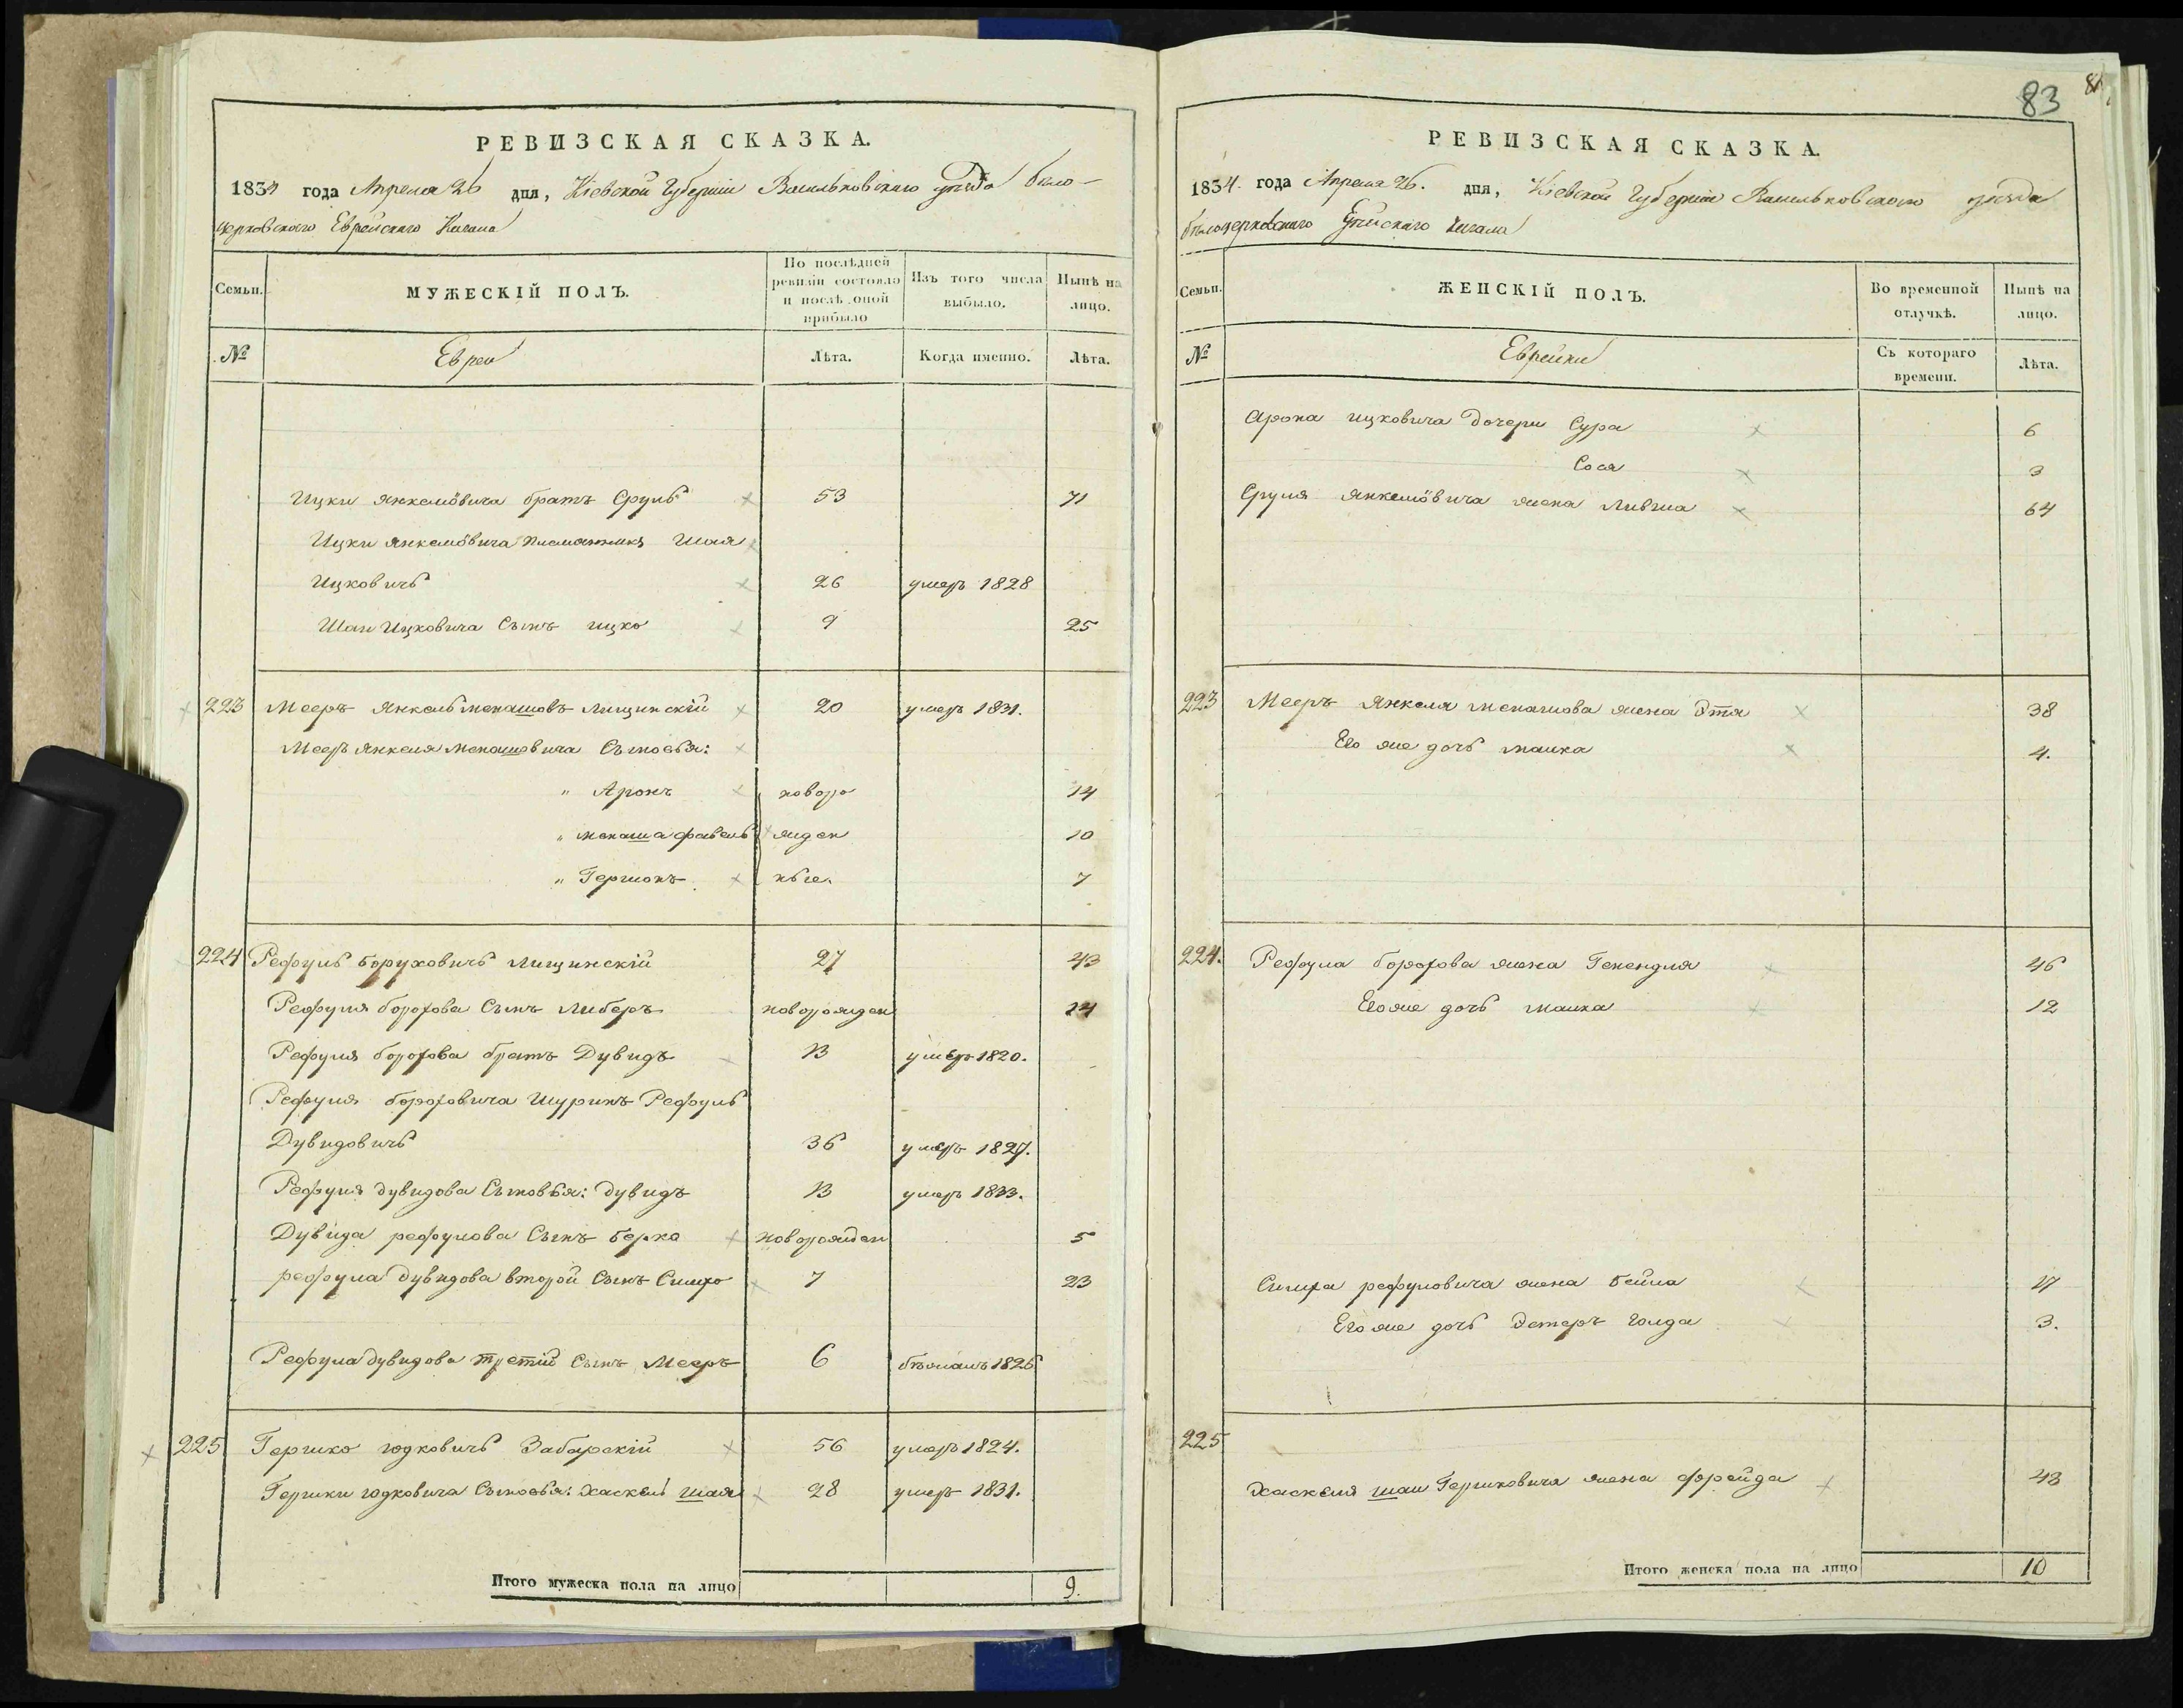 РЕВИЗСКАЯ СКАЗКА.
1834 года Апреля 26 дня, Кіевской Губерніи Васильковскаго уѣзда бѣло-
церковскаго Еврейскаго Кагала
Семьи.
МУЖЕСКІЙ ПОЛЪ.
По послѣдней ревизіи состояло и послѣ оной прибыло
Изъ того числа выбыло.
Нынѣ на лицо.
№
Евреи
Лѣта.
Когда именно.
Лѣта.
Ицки Янкелiовича братъ Сруль 53 71
Ицки Янкелiовича племянникъ Шая
Ицковичъ 26 умеръ 1828
Шаи Ицковича Сынъ ицко 9 25
223 Мееръ Янкель менашовъ Лищинскій 20 умеръ 1831.
Меєръ Янкеля менашовича Сыновья:
" Аронъ новоро 14
" менаша файвель жден 10
" Гершонъ ные. 7
224 Рефуль Боруховичъ Лищинскій 27 43
Рефуля борохова Сынъ Либеръ новорожден 14
Рефуля борохова братъ Дувидъ 13 умеръ 1820.
Рефуля бороховича Шуринъ Рефуль
Дувидовичъ 36 умеръ 1827.
Рефуля дувидова Сыновья: дувидъ 13 умеръ 1833.
Дувида рефулова Сынъ берко новорожден 5
рефула дувидова второй Сынъ Симхо 7 23
Рефула дувидова третій сынъ Мееръ 6 бѣжалъ 1826
225 Гершко юдковичъ Забарскій 56 умеръ 1824.
Гершки юдковича Сыновья: Хаскель шая 28 умеръ 1831.
Итого мужеска пола на лицо 9.
83
РЕВИЗСКАЯ СКАЗКА.
1834. года Апреля 26. дня, Кіевской Губерніи Васильковскаго уѣзда
бѣлоцерковскаго Еврейскаго Кагала
Семьи.
ЖЕНСКІЙ ПОЛЪ.
Во временной отлучкѣ.
Нынѣ на лицо.
№
Еврейки
Съ котораго времени.
Лѣта.
Арона ицковича дочери Сура 6
Сося 3
Сруля Янкелiовича жена Ливша 64
223 Мееръ Янкеля менашова жена Этя 38
Его же дочь малка 4.
224. Рефула борохова жена Генендля 46
Его же дочь малка 12
Симха рефуловича жена бейла 17
Его же дочь Эстеръ голда 3.
225
Хаскеля шаи Гершковича жена фрейда 48
Итого женска пола на лицо 10